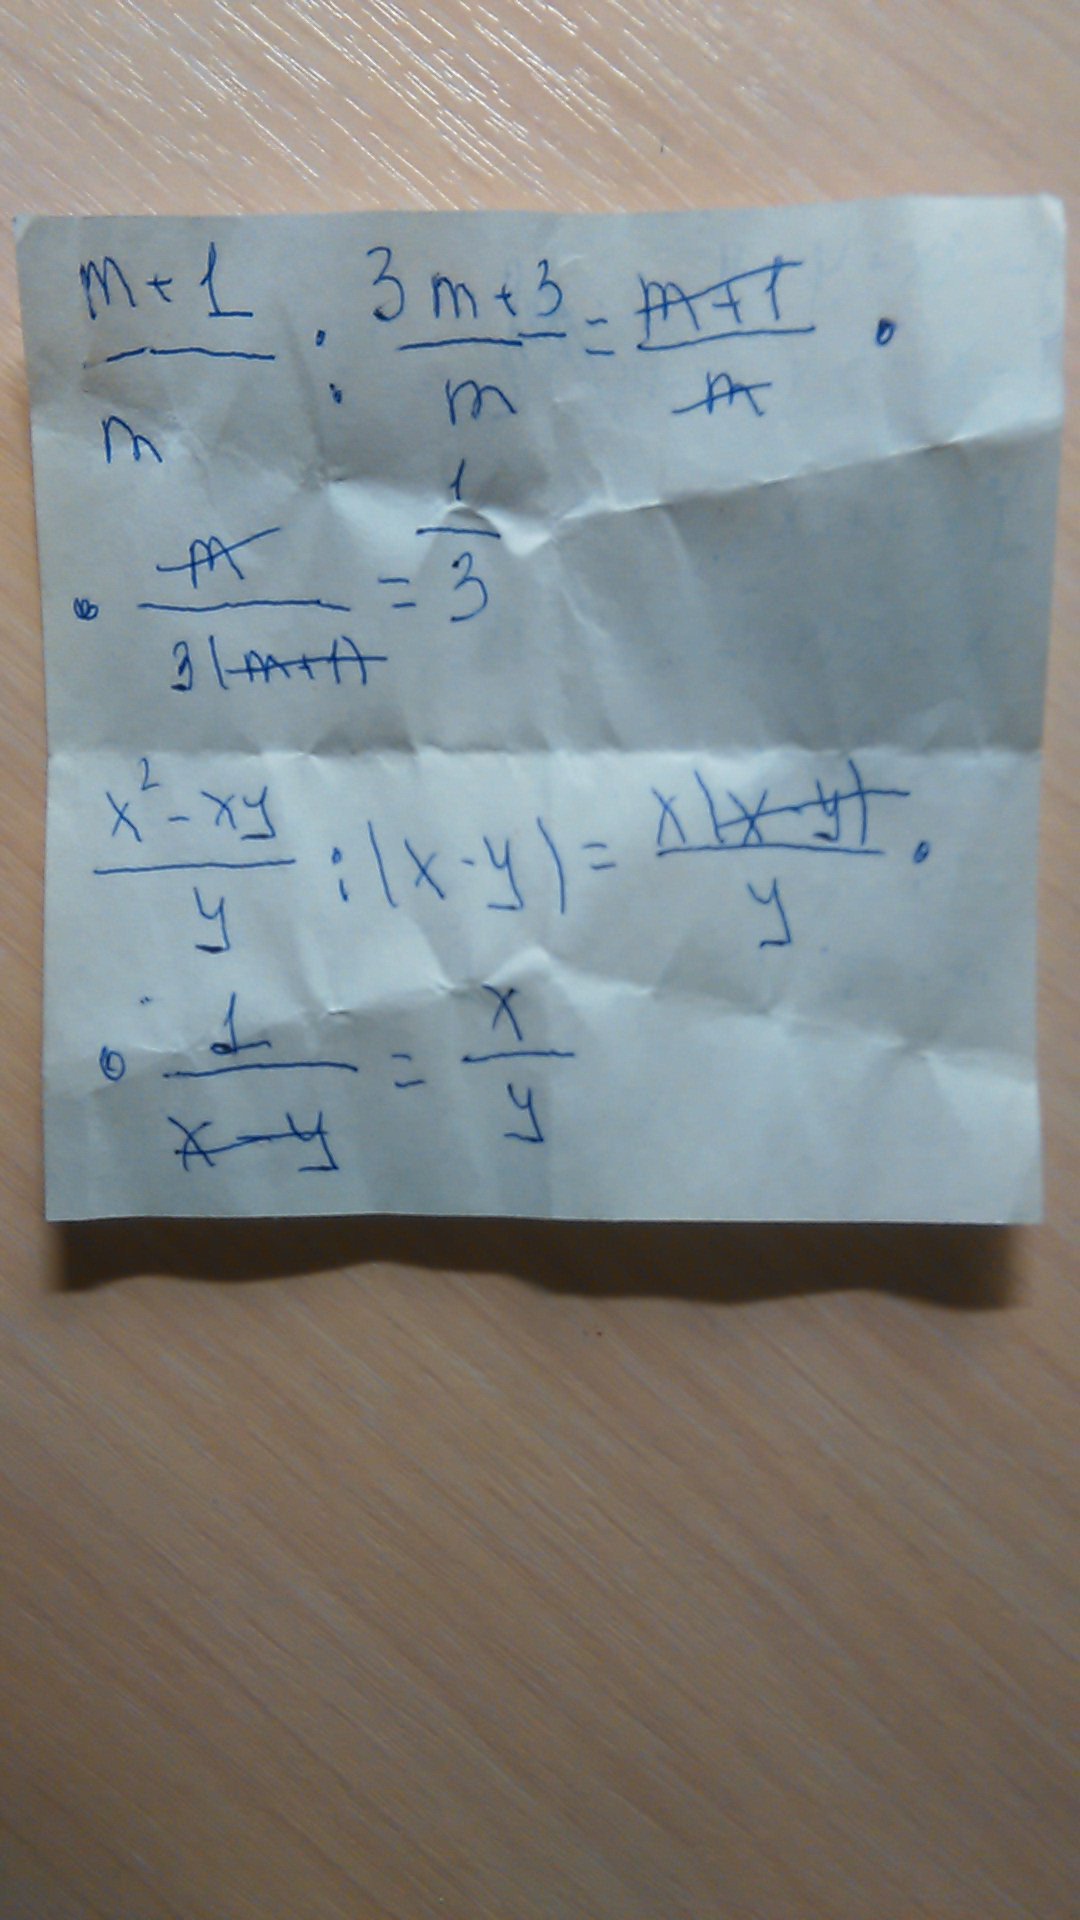 (m+1)/m : (3m+3)/m = (m+1)/m ·
· m/(3(m+1)) = 1/3
(x²-xy)/y : (x-y) = x(x-y)/y ·
· 1/(x-y) = x/y